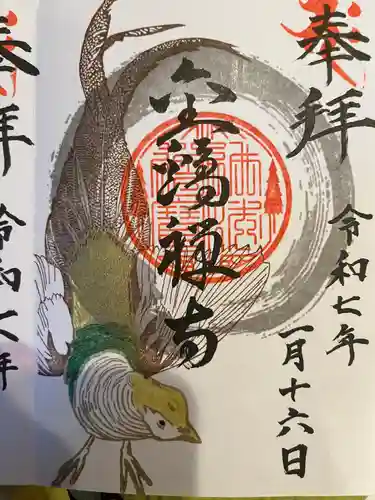 奉拝
令和七年
一月十六日
禅寺
拝
令和七年